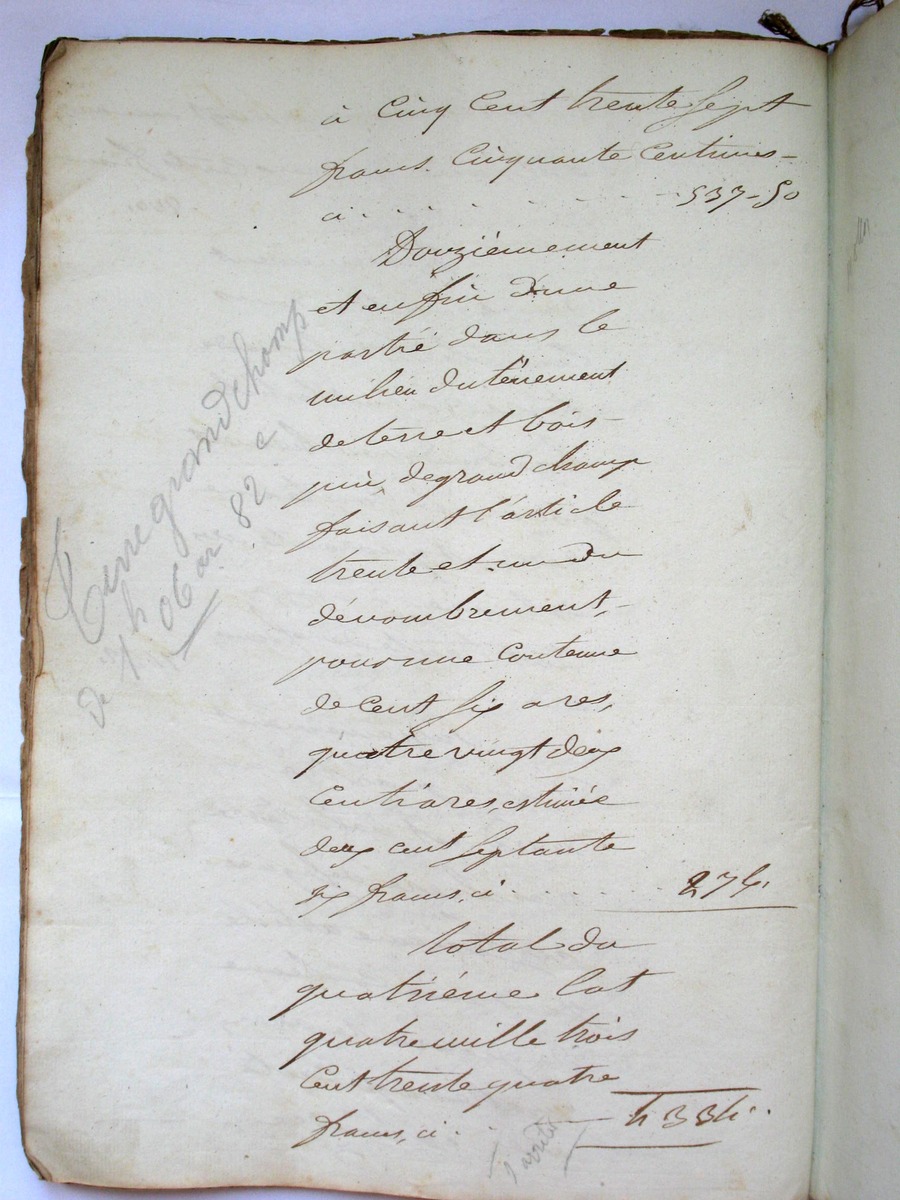 à Cinq Cent trente Sept
francs Cinquante Centimes -
ci . . . . . . . . 537 - 50
Douzièmement
et enfin d'une
partie dans le
milieu du tènement
de terre et bois -
pin, de grand champ
faisant l'article
trente et un du
dénombrement, -
pour une Contenue
de Cent Six ares,
quatre vingt deux
Centiares, estimée
deux cent Septante
six francs, ci . . . . . . 276.
total du
quatriéme Lot
quatre mille trois
Cent trente quatre
francs, ci . . . . 4334 ..
Terre grand champ
de 1 h 06 ar 82 c